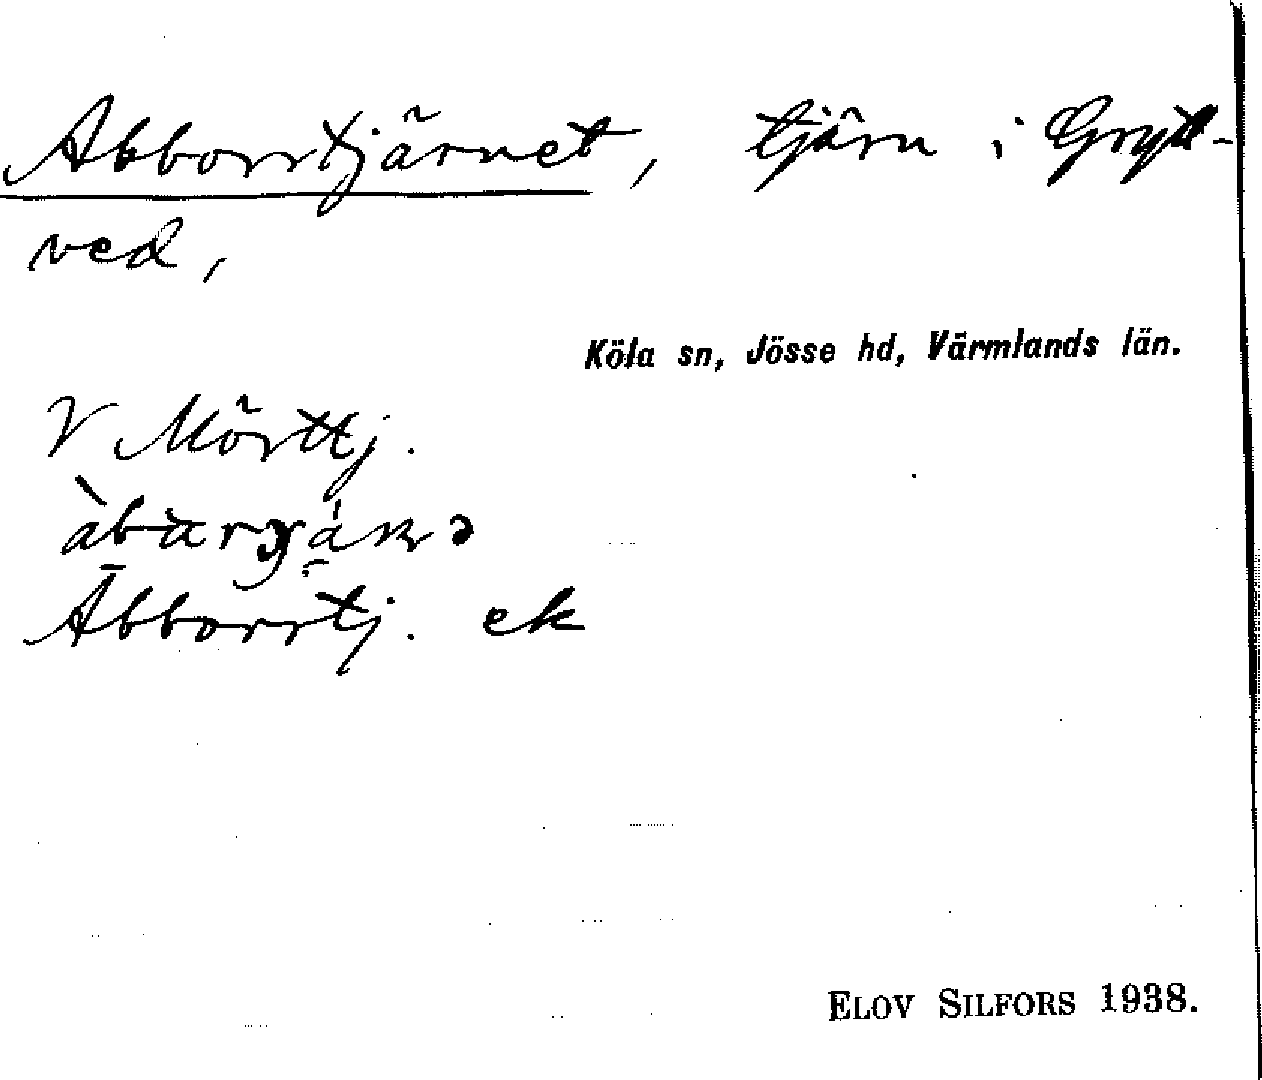 Abborrtjärnet, tjärn i Grytt-
ved,
Köla sn, Jösse hd, Värmlands län.
V Mörttj.
Abborrtj. ek
ELOV SILFORS 1938.